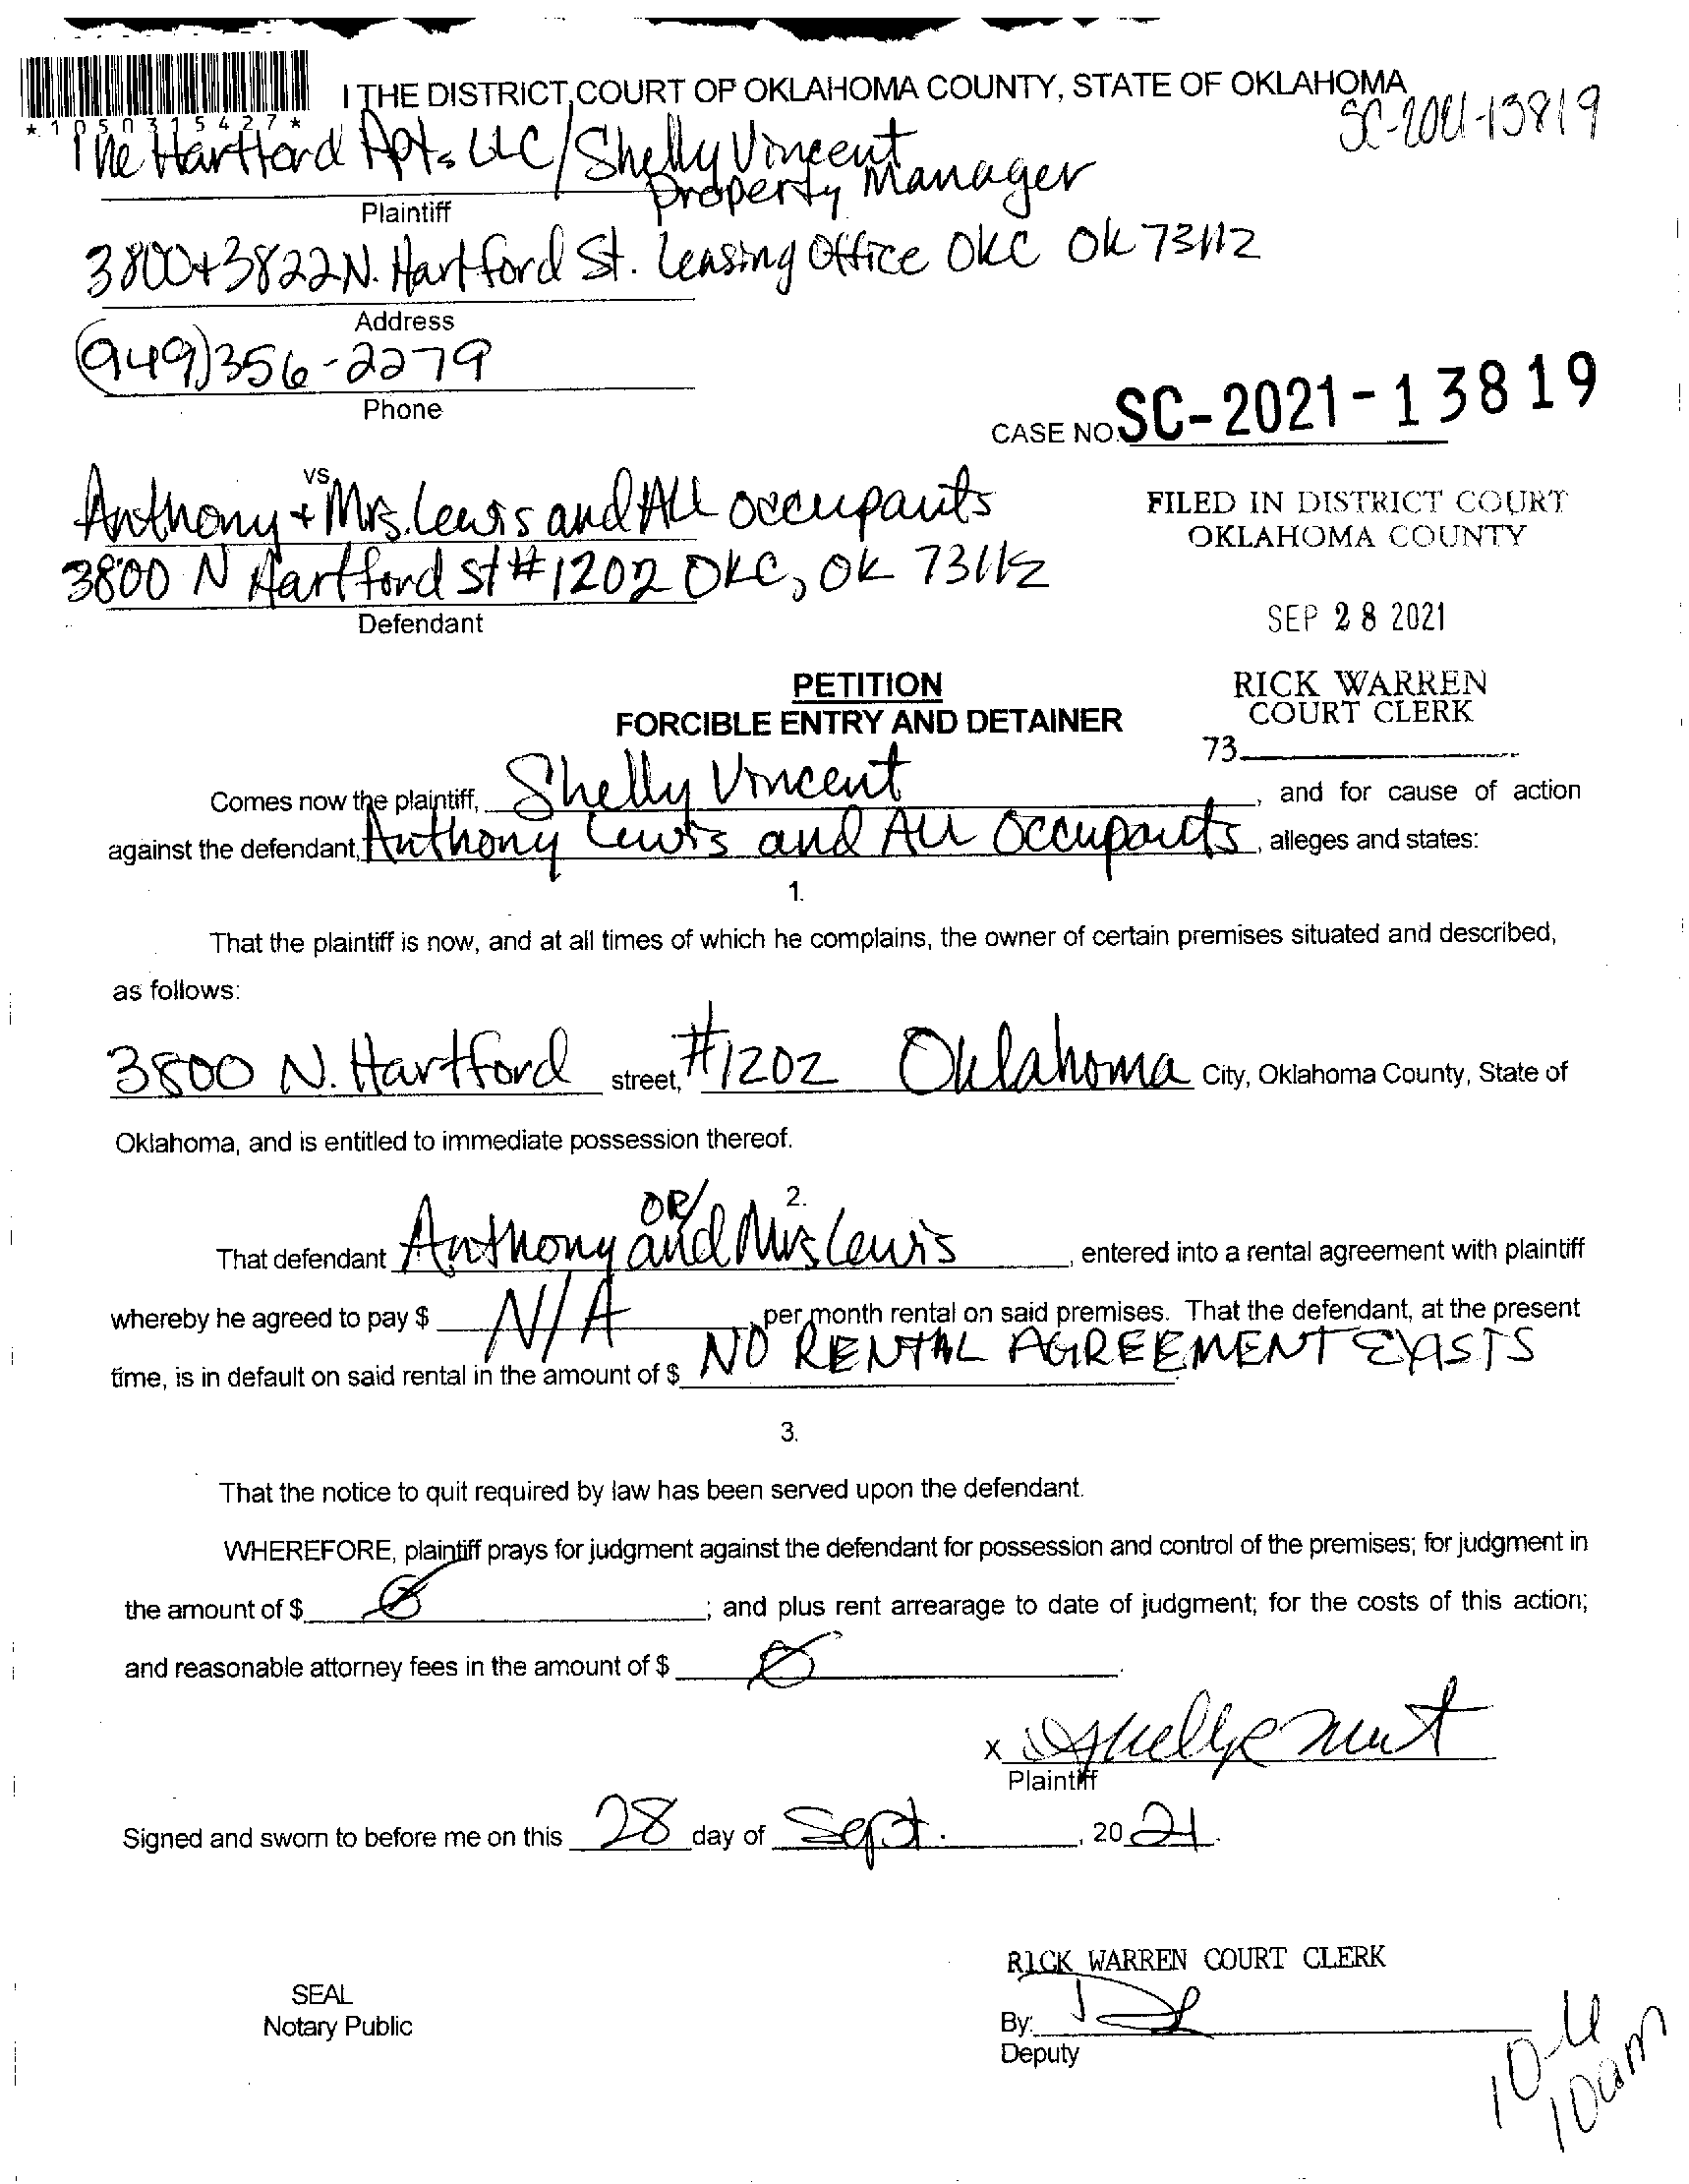 I THE DISTRICT COURT OF OKLAHOMA COUNTY, STATE OF OKLAHOMA
*1050315427*
SC-2021-13819
The Hartford Apts LLC/Shelly Vincent
Property Manager
Plaintiff
3800+3822 N. Hartford St. Leasing Office OKC OK 73112
Address
(949)356-2279
Phone
CASE NO. SC-2021-13819
vs
Anthony + Mrs. Lewis and All occupants
3800 N Hartford St #1202 OKC, OK 73112
Defendant
FILED IN DISTRICT COURT
OKLAHOMA COUNTY
SEP 28 2021
RICK WARREN
COURT CLERK
73
PETITION
FORCIBLE ENTRY AND DETAINER
Comes now the plaintiff, Shelly Vincent, and for cause of action
against the defendant, Anthony Lewis and All Occupants, alleges and states:
1.
That the plaintiff is now, and at all times of which he complains, the owner of certain premises situated and described,
as follows:
3800 N. Hartford street, #1202 Oklahoma City, Oklahoma County, State of
Oklahoma, and is entitled to immediate possession thereof.
2.
That defendant Anthony OR/and Mrs Lewis, entered into a rental agreement with plaintiff
whereby he agreed to pay $ N/A per month rental on said premises. That the defendant, at the present
time, is in default on said rental in the amount of $ NO RENTAL AGREEMENT EXISTS
3.
That the notice to quit required by law has been served upon the defendant.
WHEREFORE, plaintiff prays for judgment against the defendant for possession and control of the premises; for judgment in
the amount of $ Ø; and plus rent arrearage to date of judgment; for the costs of this action;
and reasonable attorney fees in the amount of $ Ø.
X
Plaintiff
Signed and sworn to before me on this 28 day of Sept., 2021.
RICK WARREN COURT CLERK
SEAL
Notary Public
By:
Deputy
10am